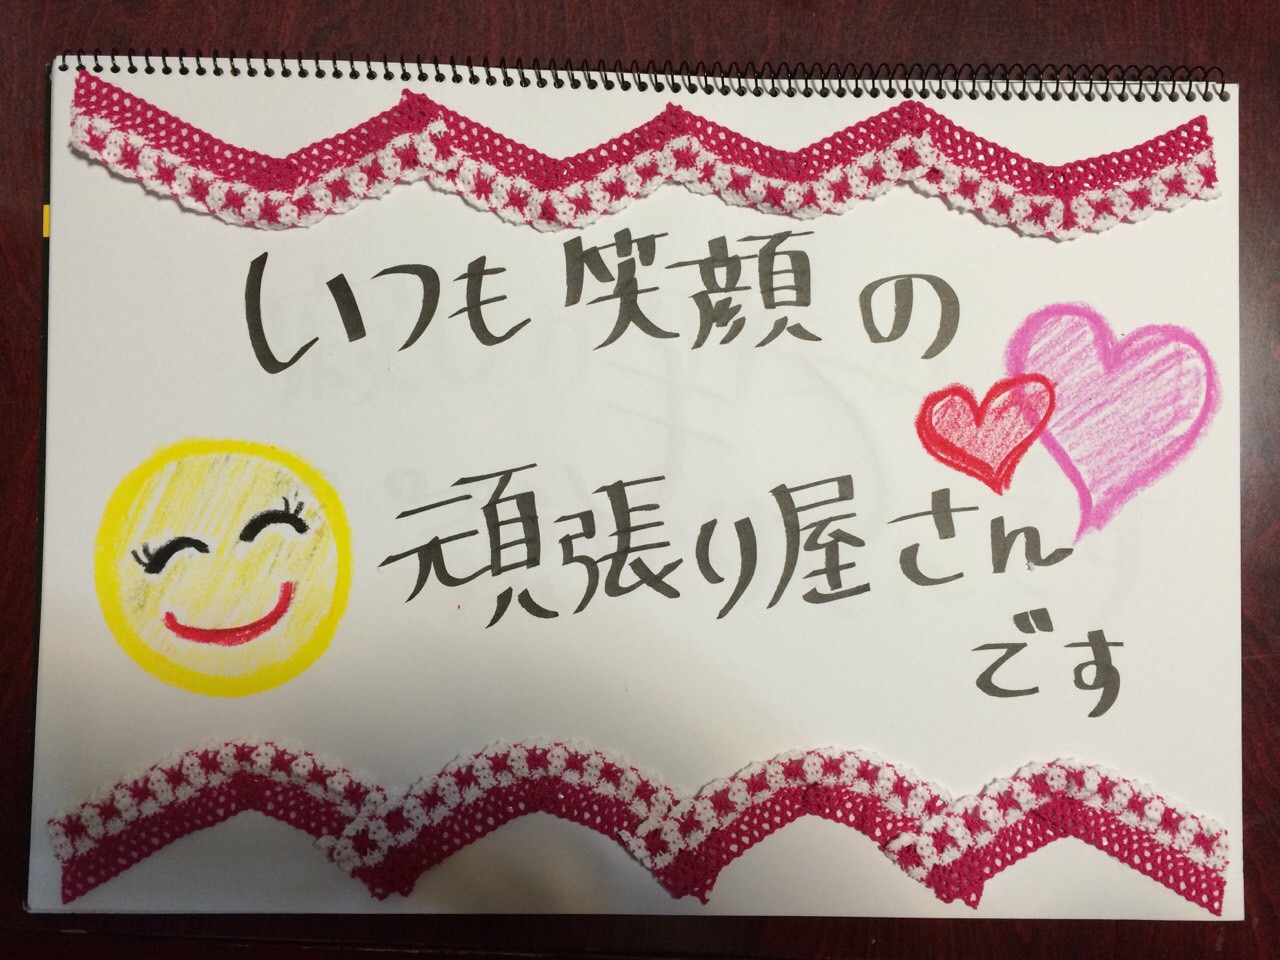 いつも笑顔の
頑張り屋さん
です